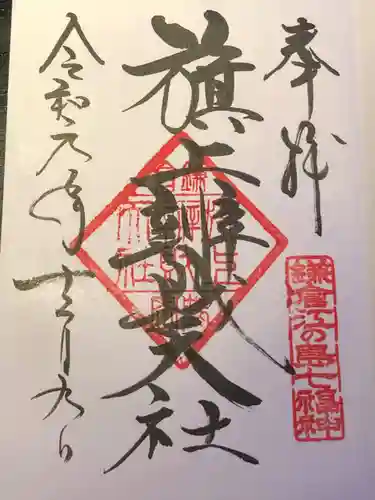 奉拝
旗上辨財天社
令和元年十二月九日
鎌倉江の島七福神